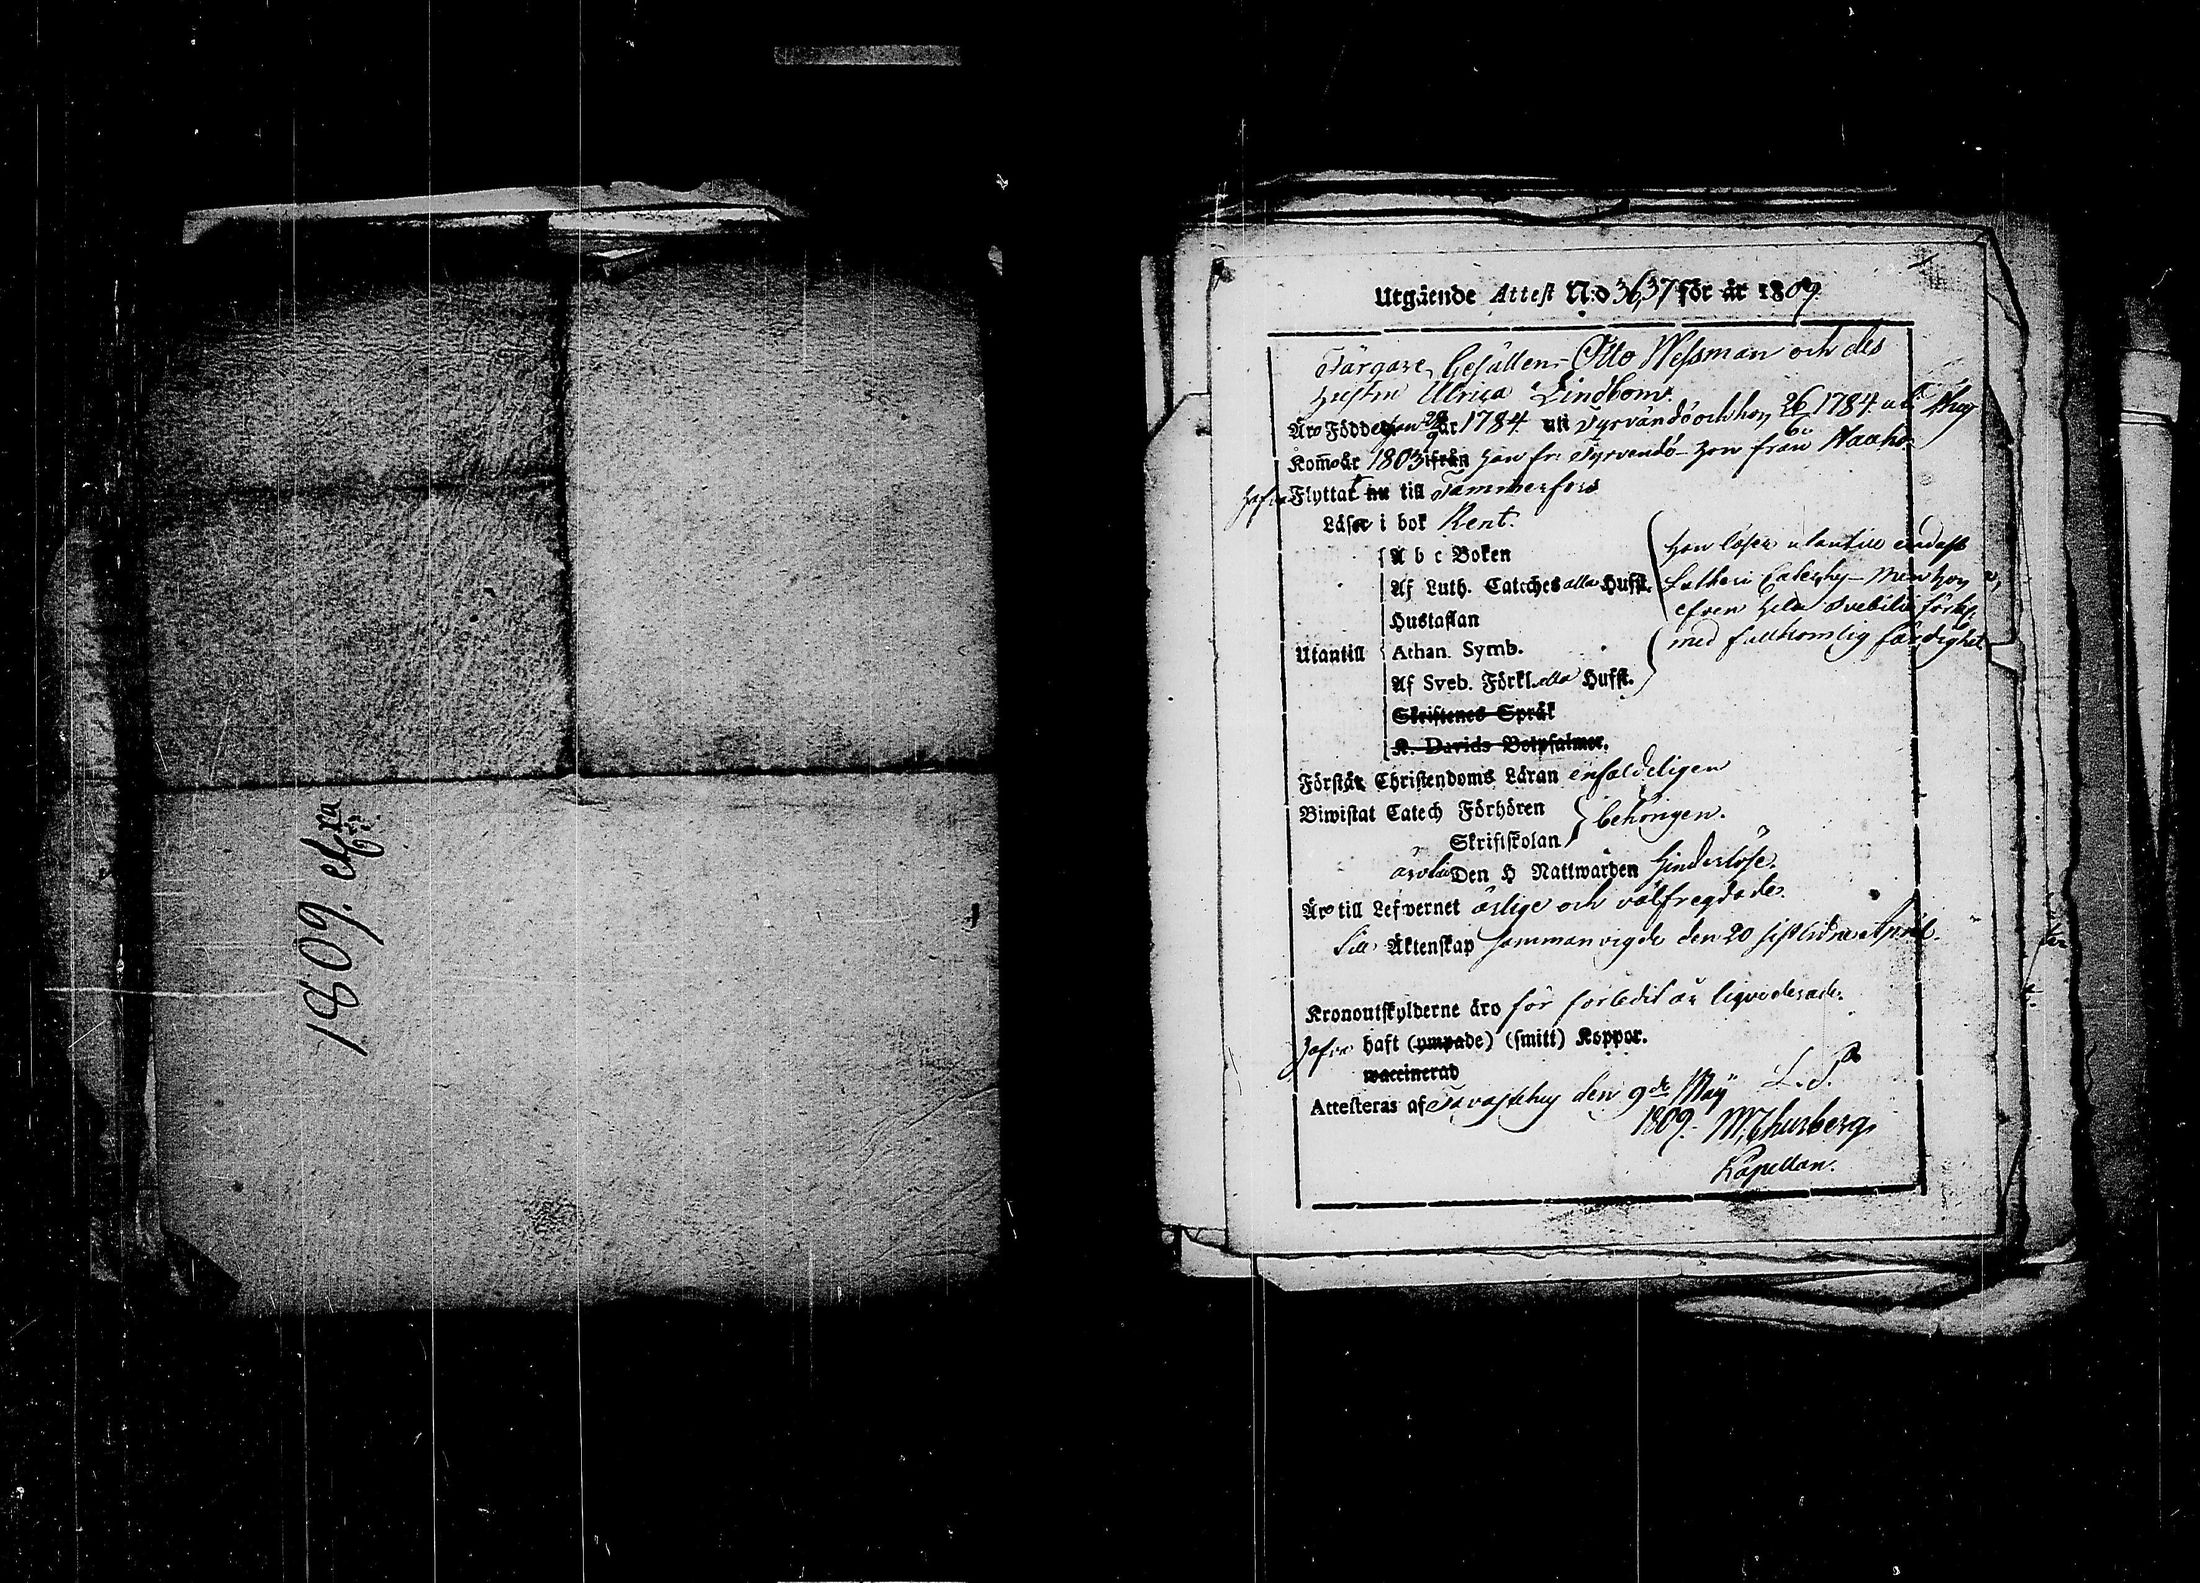 1809.
Utgående Attest N:o 36,37 för år 1809
Färgare Gesällen Otto Wessman och des
hustru Ulrica Lindbom.
Äro Födde han år 1784 uti Tyrvändö och hon 26/6 1784 uti
Kom̅o år 1803 ifrån han fr. Tyrvendö hon från
Hafva Flyttat nu till Tammerfors
Läsa i bok Rent.
A b c Boken
Af Luth. Cateches alla Hufst.
Hustaflan
Utantill
Athan. Symb.
Af Sveb. Förkl. alla Hufst.
Skriftenes Språk
K. Davids Botpsalmer.
han läser utantill endast
Lutheri Cateches - Men hon
efven hela Svebilii förkl.
med fullkomlig färdighet
Förstår Christendoms Läran enfaldeligen
Biwistat Catech Förhören
Skriftskolan
behörigen.
äro till Den H Nattwarden hinderlöse.
Äro till Lefwernet ärlige och välfregdade.
Till Äktenskap sammanvigde den 20 sistledne April.
Kronoutskylderne äro för förledit år liqviderade.
Hafva haft (ympade) (smitt) Koppor.
waccinerad
Attesteras af Tavastehus den 9de Maij
L. S.
1809. M. Thurberg
Kapellan.